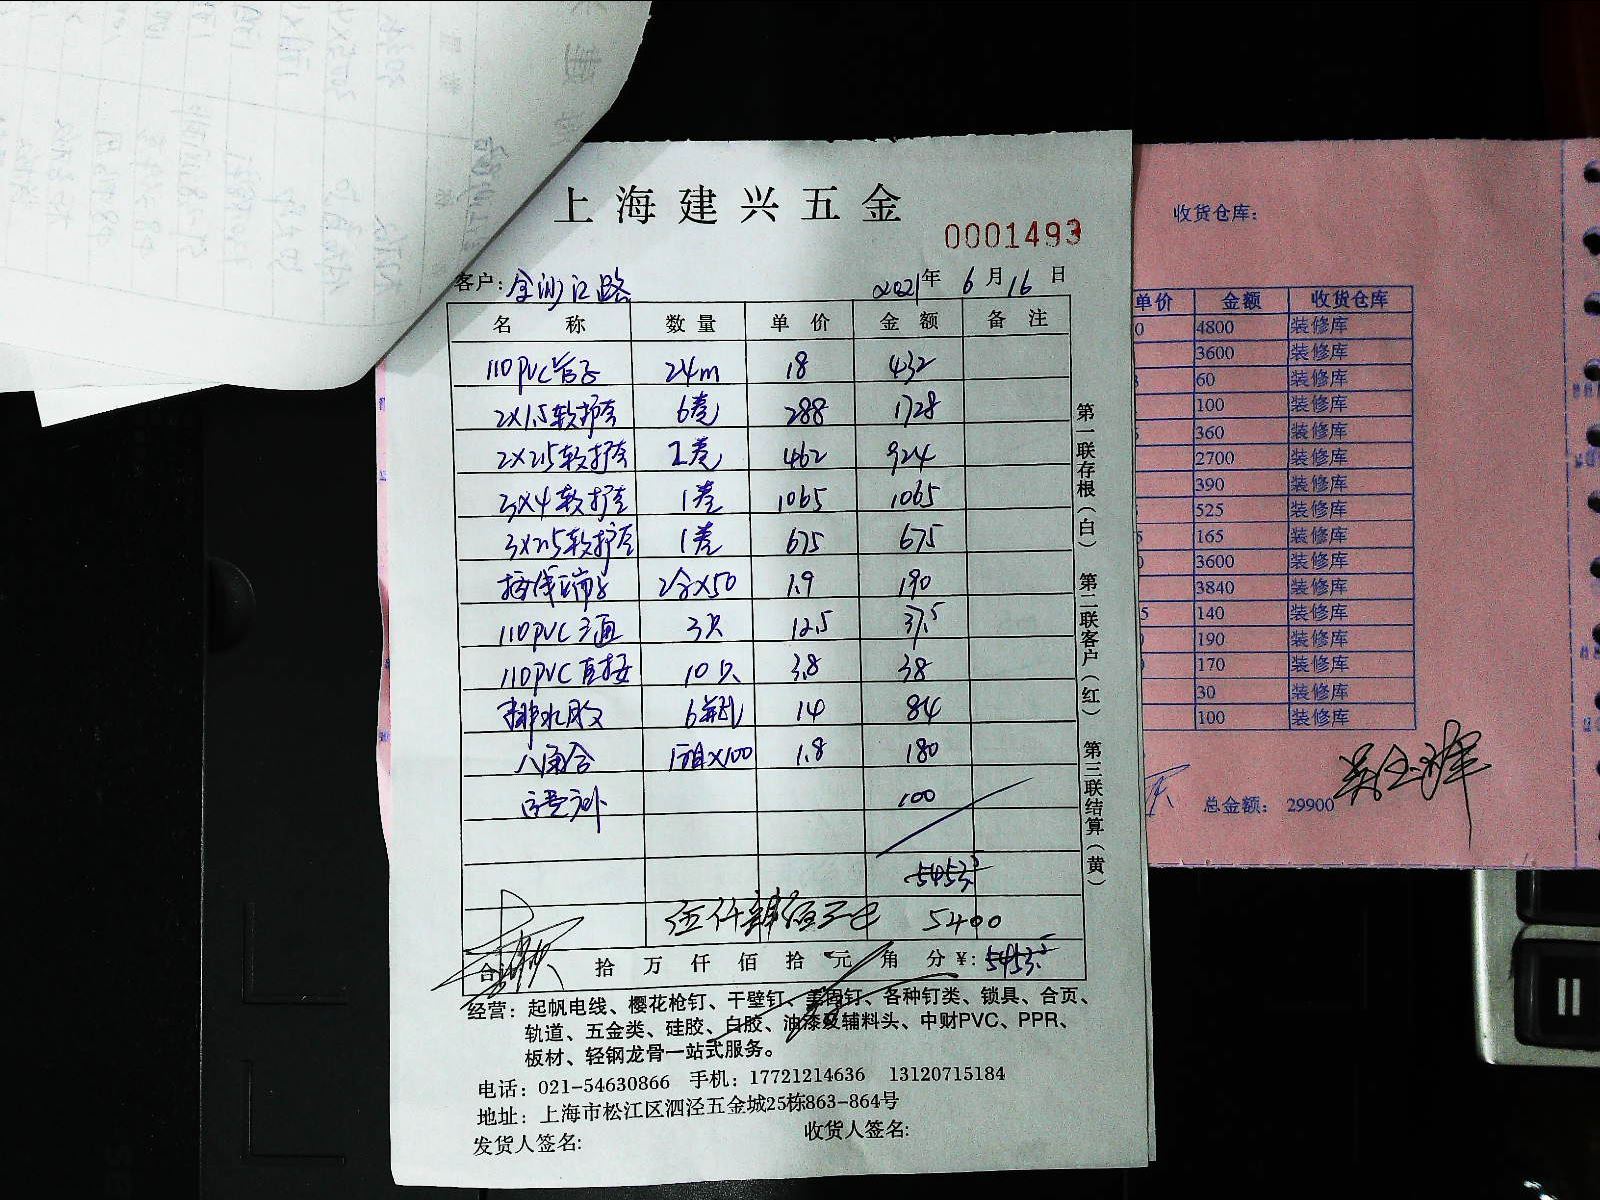 上海建兴五金
0001493
客户: 金沙江路 2021年 6月 16日
名称 数量 单价 金额 备注
110PVC管子 24m 18 432
2×1.5软护套 6卷 288 1728
2×2.5软护套 2卷 462 924
3×4软护套 1卷 1065 1065
3×2.5软护套 1卷 675 675
接线端子 2合×50 1.9 190
110PVC三通 3只 12.5 37.5
110PVC直接 10只 3.8 38
排水胶 6瓶 14 84
八角合 1箱×100 1.8 180
100
5453.5
伍仟肆佰元 5400
合计 拾万仟佰拾元角分 ¥: 5453.5
经营: 起帆电线、樱花枪钉、干壁钉、美固钉、各种钉类、锁具、合页、
轨道、五金类、硅胶、白胶、油漆及辅料头、中财PVC、PPR、
板材、轻钢龙骨一站式服务。
电话: 021-54630866 手机: 17721214636 13120715184
地址: 上海市松江区泗泾五金城25栋863-864号
发货人签名: 收货人签名:
第一联存根(白) 第二联客户(红) 第三联结算(黄)
收货仓库:
单价 金额 收货仓库
4800 装修库
3600 装修库
60 装修库
100 装修库
360 装修库
2700 装修库
390 装修库
525 装修库
165 装修库
3600 装修库
3840 装修库
140 装修库
190 装修库
170 装修库
30 装修库
100 装修库
总金额: 29900